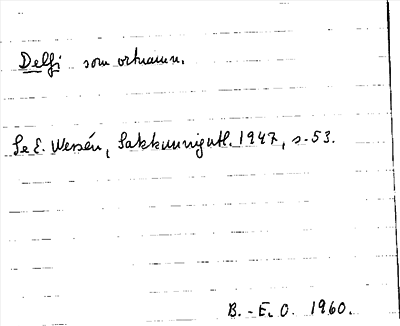 Delfi som ortnamn.
Se E. Wessén, Sakkunnigutl. 1947, s. 53.
B.-E. O. 1960.